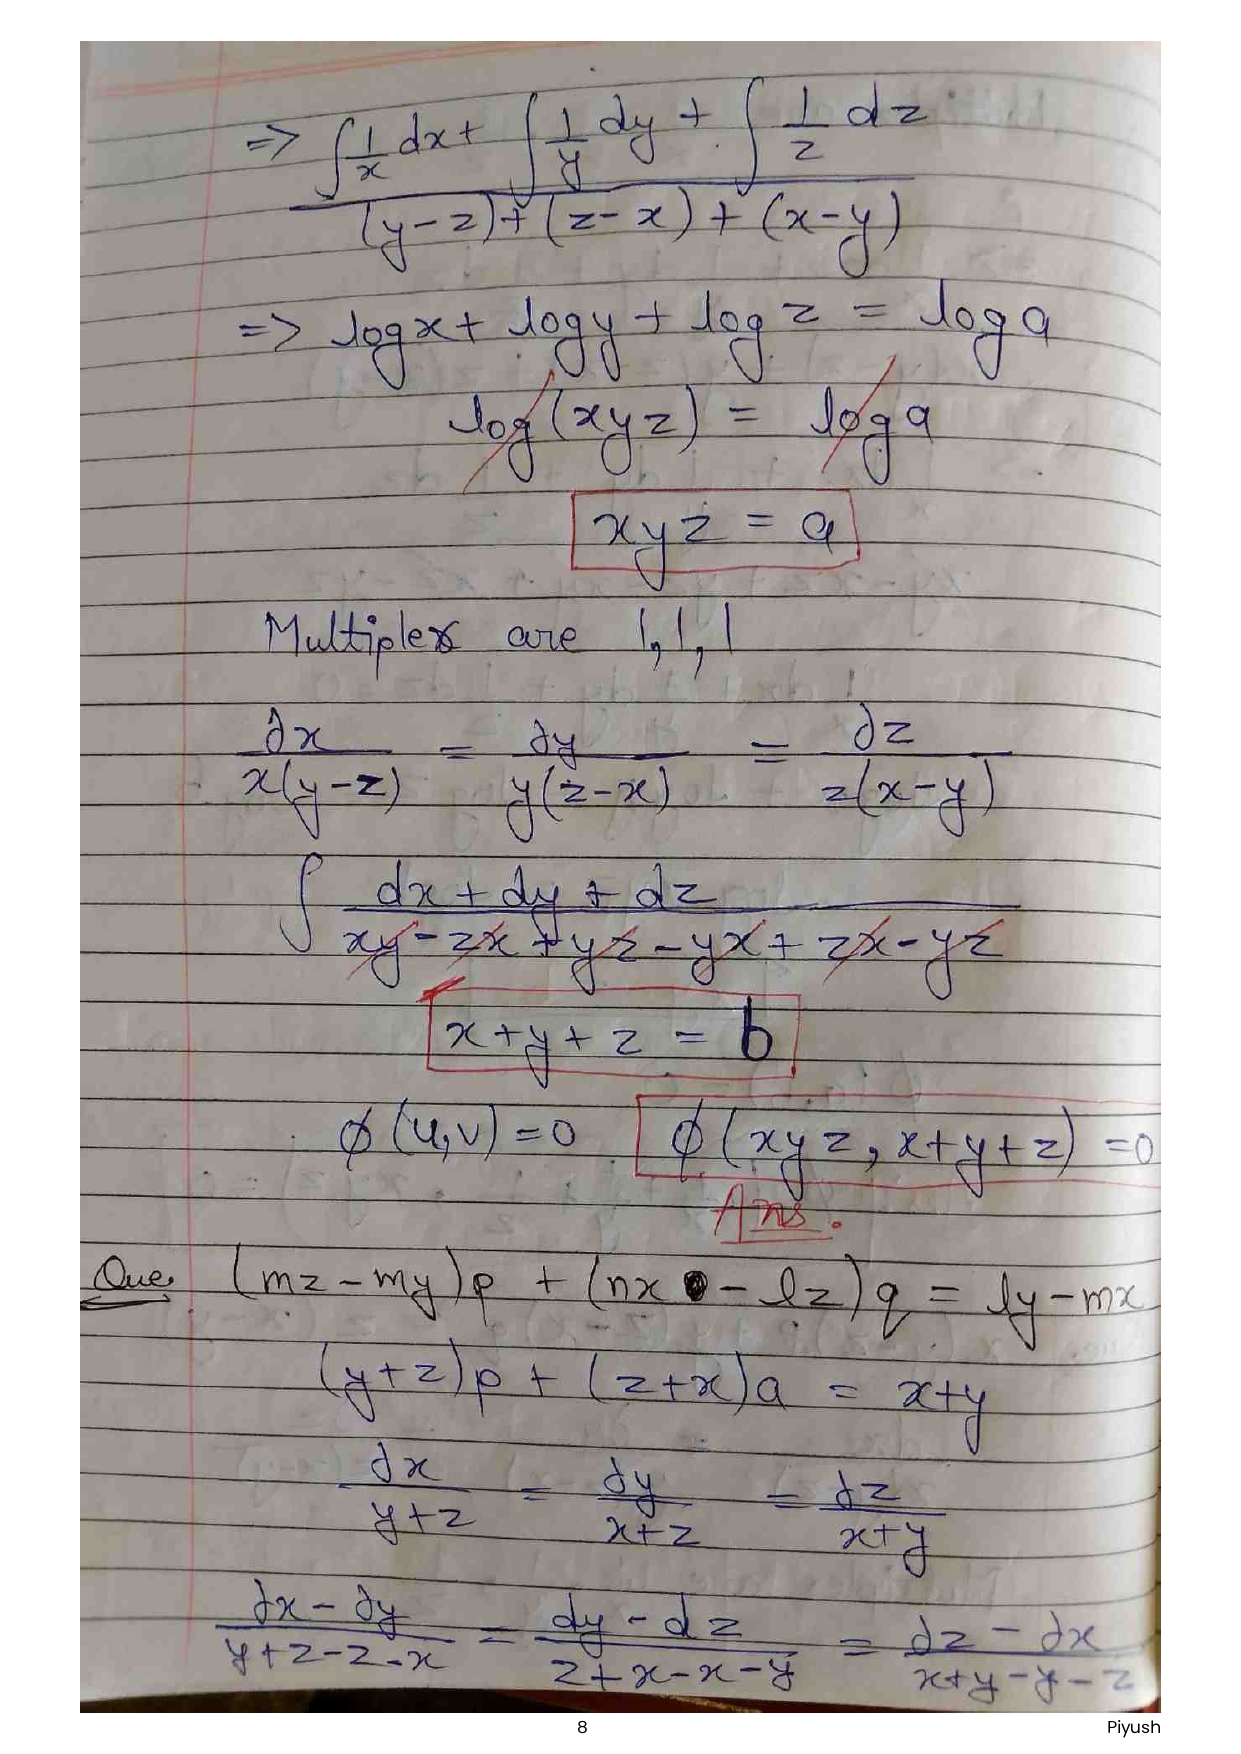 => ∫1/x dx + ∫1/y dy + ∫1/z dz
(y-z)+(z-x)+(x-y)
=> logx + logy + log z = log a
log(xyz) = log a
xyz = a
Multiplers are 1,1,1
∂x/x(y-z) = ∂y/y(z-x) = ∂z/z(x-y)
∫ dx+dy+dz/xy-zx+yz-yx+zx-yz
x+y+z = b
ϕ(u,v)=0 ϕ(xyz, x+y+z)=0
Ans.
Que. (mz-my)p + (nx - lz)q = ly-mx
(y+z)p + (z+x)q = x+y
∂x/y+z = ∂y/x+z = ∂z/x+y
∂x-∂y/y+z-z-x = dy-dz/z+x-x-y = ∂z-∂x/x+y-y-z
8 Piyush